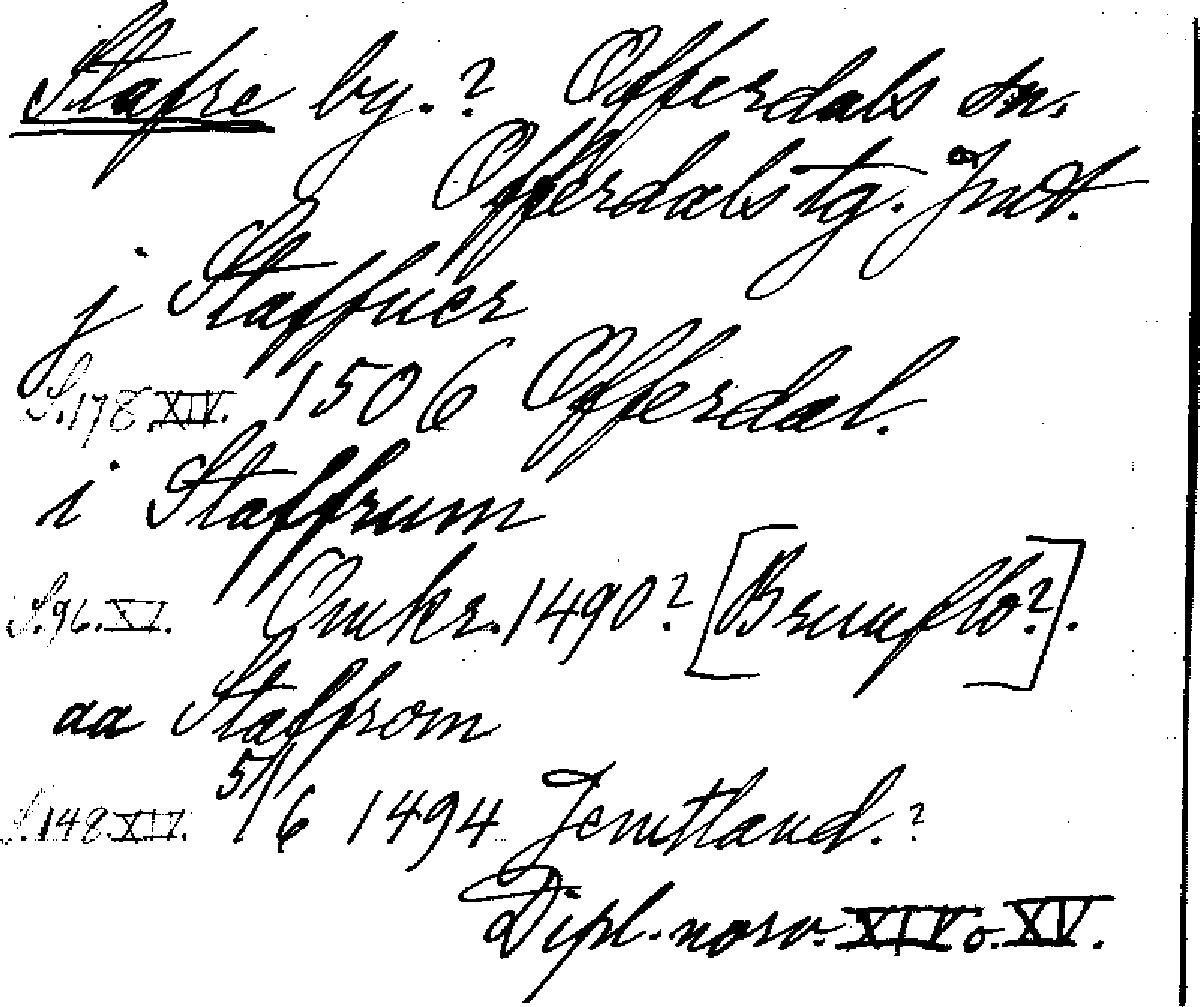 Stafre by.? Offerdals sn.
Offerdals tg. Jmt.
j Staffuer
S.178 XIV. 1506 Offerdal.
i Staffrum
S.96. XV. Omkr. 1490? [Brunflo?].
aa Staffrom
S.148 XIV. 5/6 1494 Jemtland.?
Dipl. norv. XIV o. XV.